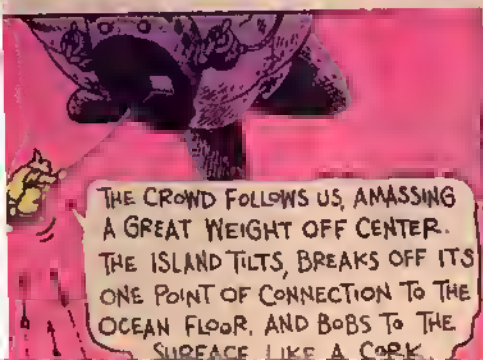 THE CROWD FOLLOWS US, AMASSING
A GREAT WEIGHT OFF CENTER.
THE ISLAND TILTS, BREAKS OFF ITS
ONE POINT OF CONNECTION TO THE
OCEAN FLOOR, AND BOBS TO THE
SURFACE LIKE A CORK